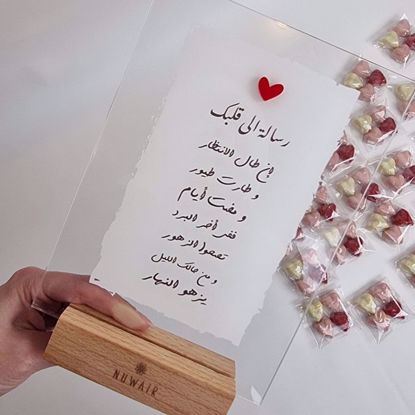 رسالة الى قلبك
إن طال الانتظار
و طارت طيور
و مضت أيام
ففي أخر البرد
تصحوا الزهور
و من حالك الليل
يزهو النهار
NUWAIR